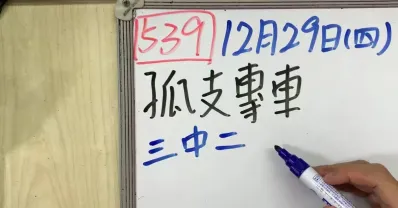 539 12月29日(四)
孤支專車
三中二